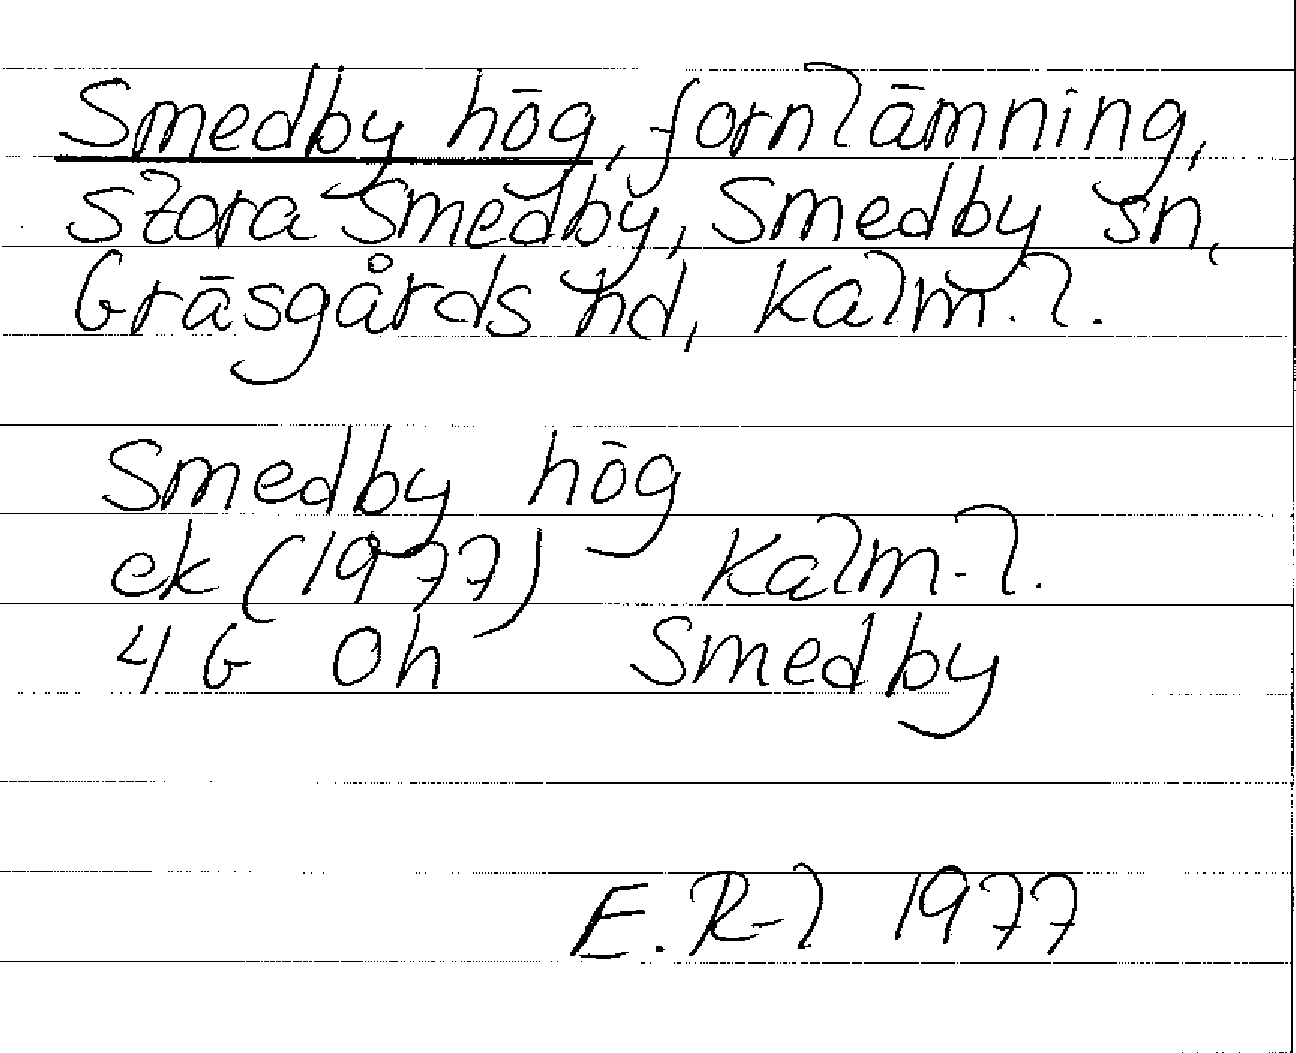 Smedby hög, fornlämning,
Stora Smedby, Smedby sn,
Gräsgårds hd, Kalm. l.
Smedby hög
ek (1977) Kalm. l.
4 G Oh Smedby
E. R-l 1977